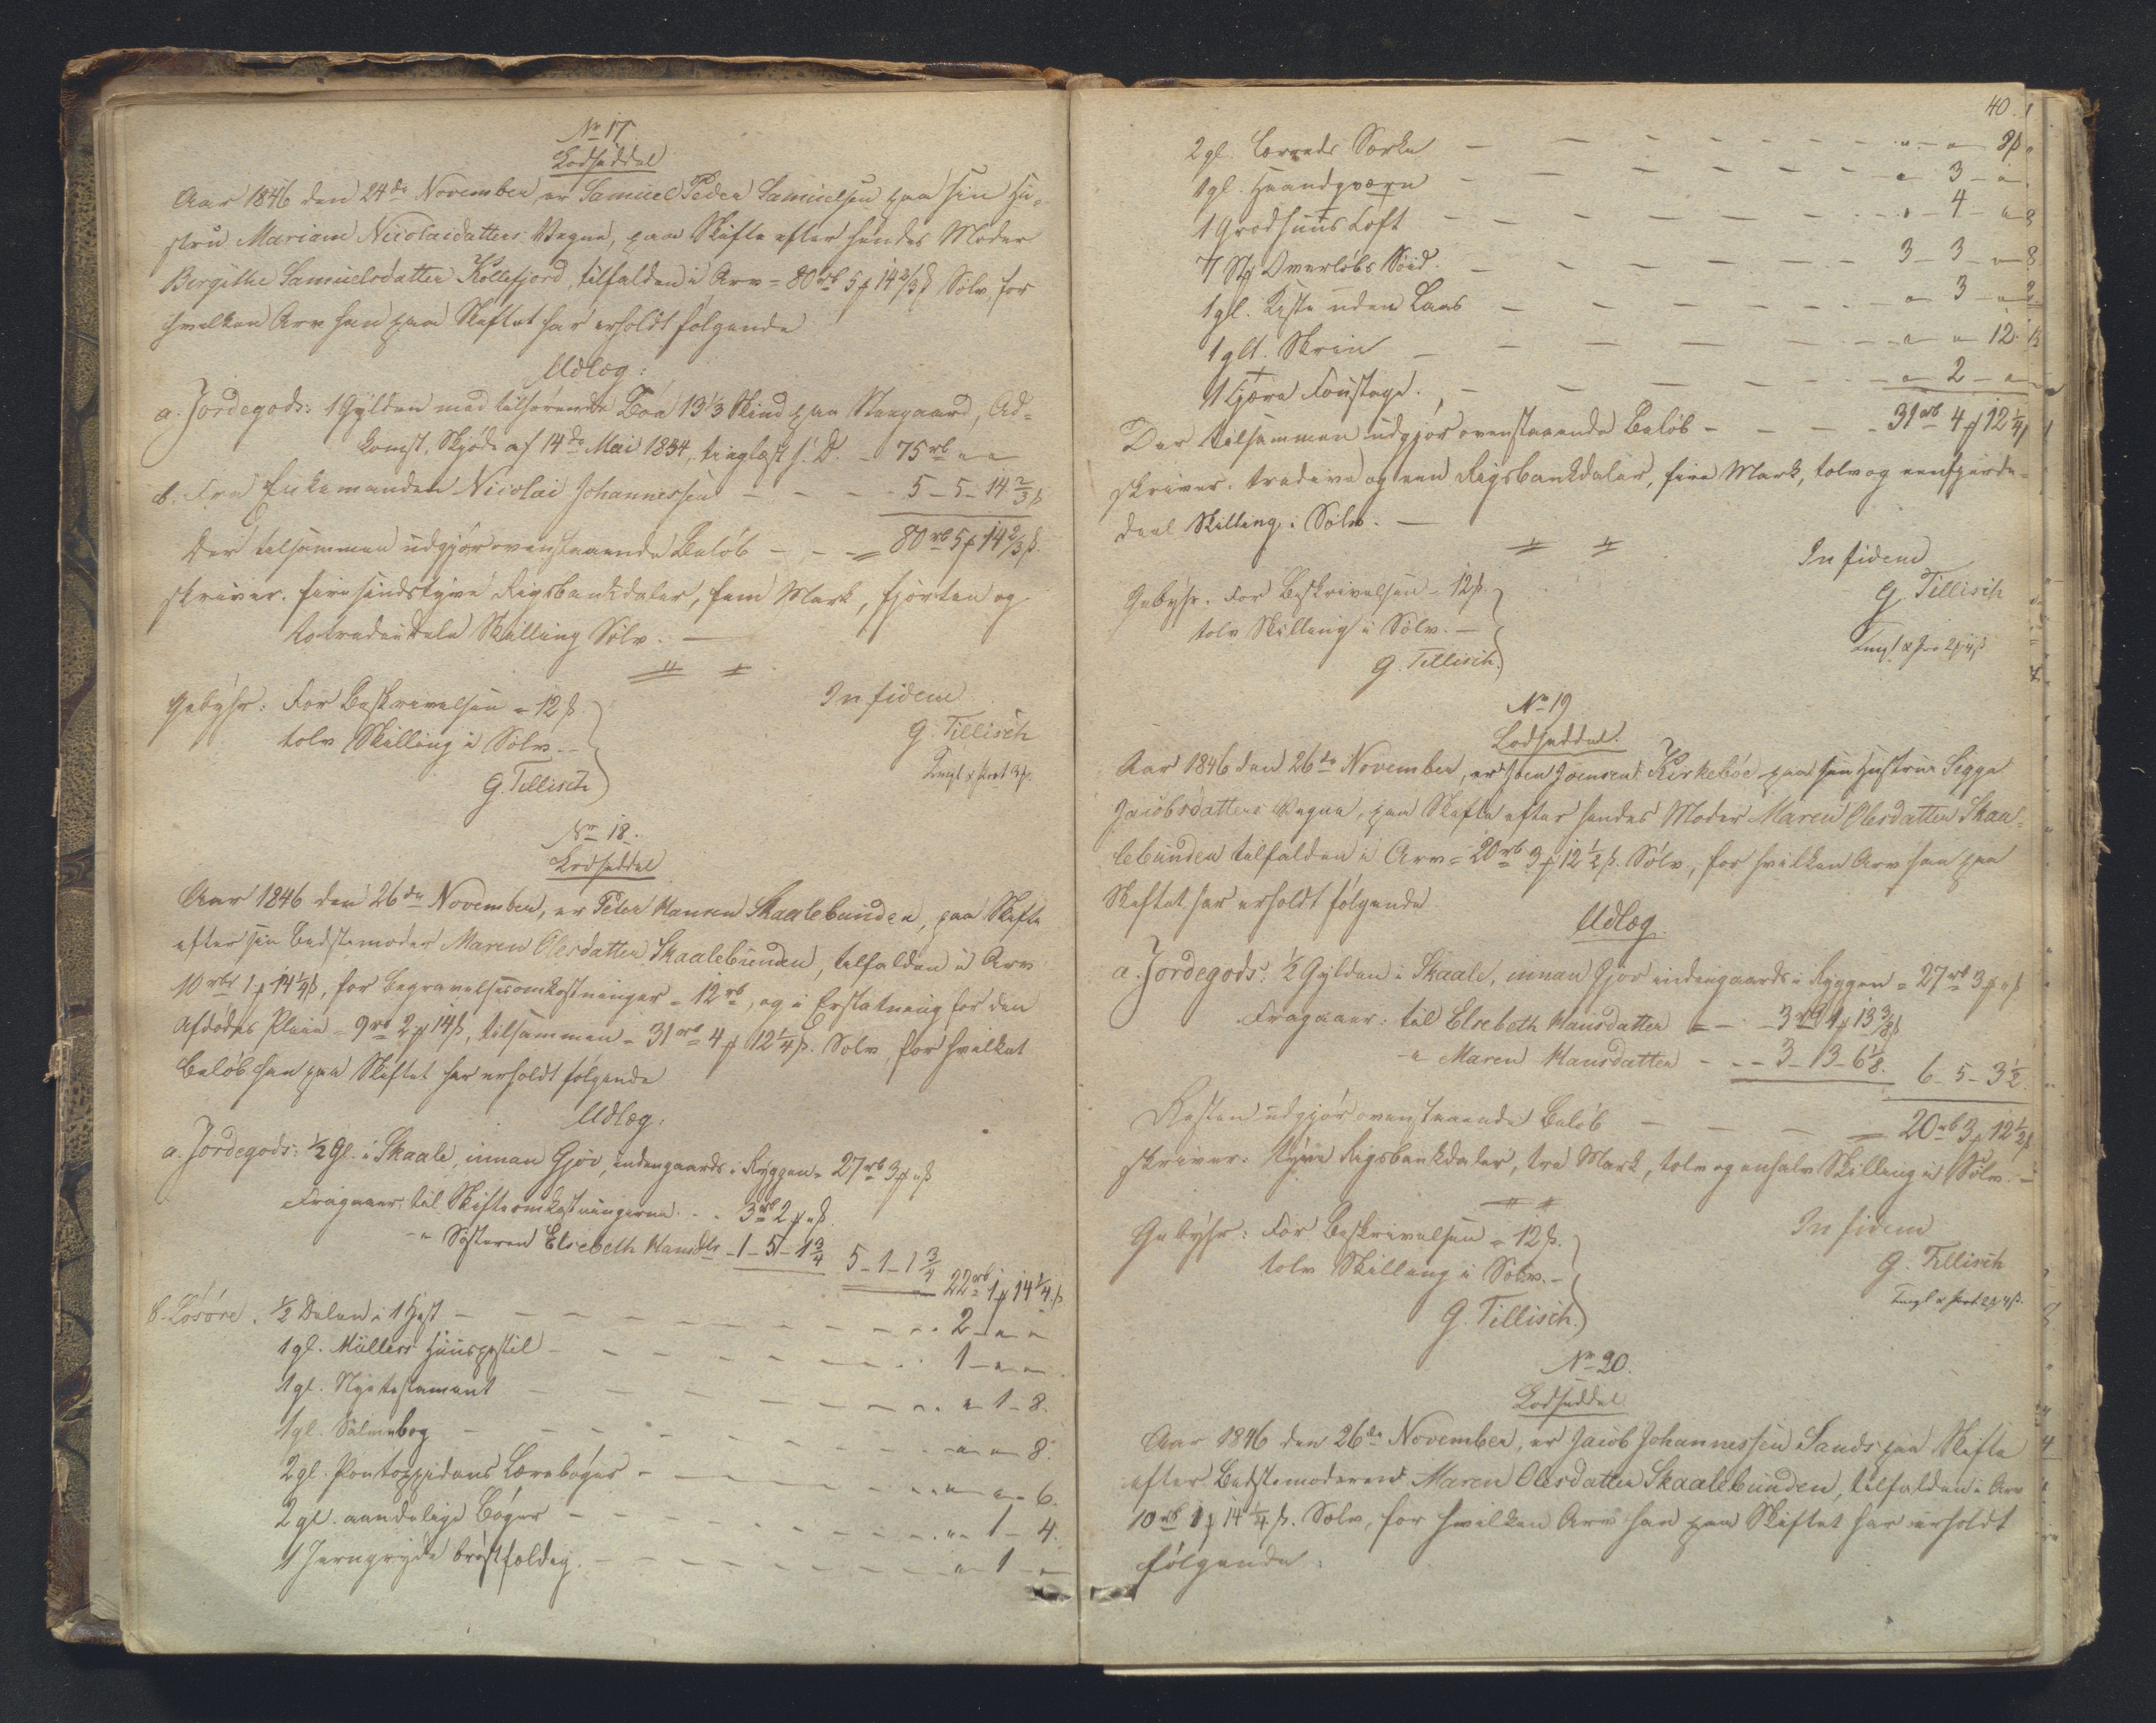 No 17.
Lodseddel
Aar 1846 den 24de November, er Samuel Peder Samuelsen paa sin Hu-
stru Mariane Nicolaidatters Vegne, paa Skifte efter hendes Moder
Birgithe Samuelsdatter Kollefjord, tilfalden i Arv = 80 rb 5 ₰ 14 2/3 ß Sølv, for
hvilken Arv han paa Skiftet har erholdt følgende
Udlæg:
a. Jordegods: 1 Gylden med tilhørende 13 1/3 Skind paa Steegaard, Ad-
komst, Skjøde af 14de Mai 1834, tinglæst s. D. - 75 rb " "
b. Fra Enkemanden Nicolai Johannessen - - - 5 - 5 - 14 2/3 ß
Der tilsammen udgjør ovenstaaende Beløb - - = 80 rb 5 ₰ 14 2/3 ß.
skriver. firesindstyve Rigsbankdaler, fem Mark, fjorten og
totrediedele Skilling Sølv. —
Gebyhr: For Beskrivelsen = 12 ß.
tolv Skilling i Sølv. -
G. Tillisch
In fidem
G. Tillisch
No 18.
Lodseddel
Aar 1846 den 26de November, er Peter Hansen Skaalebunden, paa Skifte
efter sin Bedstemoder Maren Olesdatter Skaalebunden, tilfalden i Arv
10 rb 1 ₰ 14 1/4 ß, for Begravelsesomkostninger = 12 rb, og i Erstatning for den
Afdødes Pleie = 9 rb 2 ₰ 14 ß, tilsammen = 31 rb 4 ₰ 12 1/4 ß. Sølv, for hvilket
Beløb han paa Skiftet har erholdt følgende
Udlæg:
a. Jordegods: 1/2 Gl. i Skaale, innan Gjov, indengaards i Ryggen = 27 rb 3 ₰ " ß
Fragaaer: til Skifteomkostningerne. - - 3 rb 2 ₰ " ß.
- " Søsteren Elsebeth Hansdtr - 1 - 5 - 1 3/4 5 - 1 - 1 3/4
22 rb 1 ₰ 14 1/4 ß
b. Løsøre. 1/2 Delen i 1 Hest - - - 2 - " - "
1 gl. Müllers Huuspostil - - - 1 - " - "
1 gl. Nye testament - - - " 1 - 8.
1 gl. Salmebog - - - " - " 8.
2 gl. Pontoppidans Lærebøger - - - " - " - 6.
2 gl. aandelige Bøger - - - " 1 - 4.
1 Jerngryde brøstfældig. - - - " 1 - "
40.
2 gl. Lærreds Særke - - - " - " 8 ß
1 gl. Haandqværn - - - " 3 - "
1 Grødhuus Loft - - - " 4 - "
7 Overløbs - - - 3 - 3 - " 8
1 gl. Kiste uden Laas - - - " 3 - "
1 glt. Skrin - - - " " 12.
1 Tjære Foustage. - - - " 2 - "
Der tilsammen udgjør ovenstaaende Beløb - - - 31 rb 4 ₰ 12 1/4 ß
skriver. tredive og een Rigsbankdaler, fire Mark, tolv og eenfjerde-
deel Skilling i Sølv. —
Gebyhr. For Beskrivelsen - 12 ß.
tolv Skilling i Sølv. —
G. Tillisch.
In fidem
G. Tillisch
No 19
Lodseddel.
Aar 1846 den 26de November, er Joen Joensen Kirkebøe paa sin Hustrue Sigga
Jacobsdatters Vegne, paa Skifte efter hendes Moder Maren Olesdatter Skaa-
lebunden tilfalden i Arv = 20 rb 3 ₰ 12 1/2 ß. Sølv, for hvilken Arv han paa
Skiftet har erholdt følgende
Udlæg.
a. Jordegods: 1/2 Gylden i Skaale, innan Gjov indengaards i Ryggen = 27 rb 3 ₰ " ß
Fragaaer: til Elsebeth Hansdatter - - 3 rb 1 ₰ 13 3/8 ß
- " Maren Hansdatter - - - 3 - 3 - 6 1/8. 6 - 5 - 3 1/2.
Resten udgjør ovenstaaende Beløb - - - = 20 rb 3 ₰ 12 1/2 ß
skriver. tyve Rigsbankdaler, tre Mark, tolv og enhalv Skilling i Sølv. -
Gebyhr: For Beskrivelsen = 12 ß.
tolv Skilling i Sølv. -
G. Tillisch.
In fidem
G. Tillisch
No 20.
Lodseddel
Aar 1846 den 26de November, er Jacob Johannessen Sands paa Skifte
efter Bedstemoderen Maren Olesdatter Skaalebunden, tilfalden i Arv
10 rb 1 ₰ 14 1/4 ß. Sølv, for hvilken Arv han paa Skiftet har erholdt
følgende: